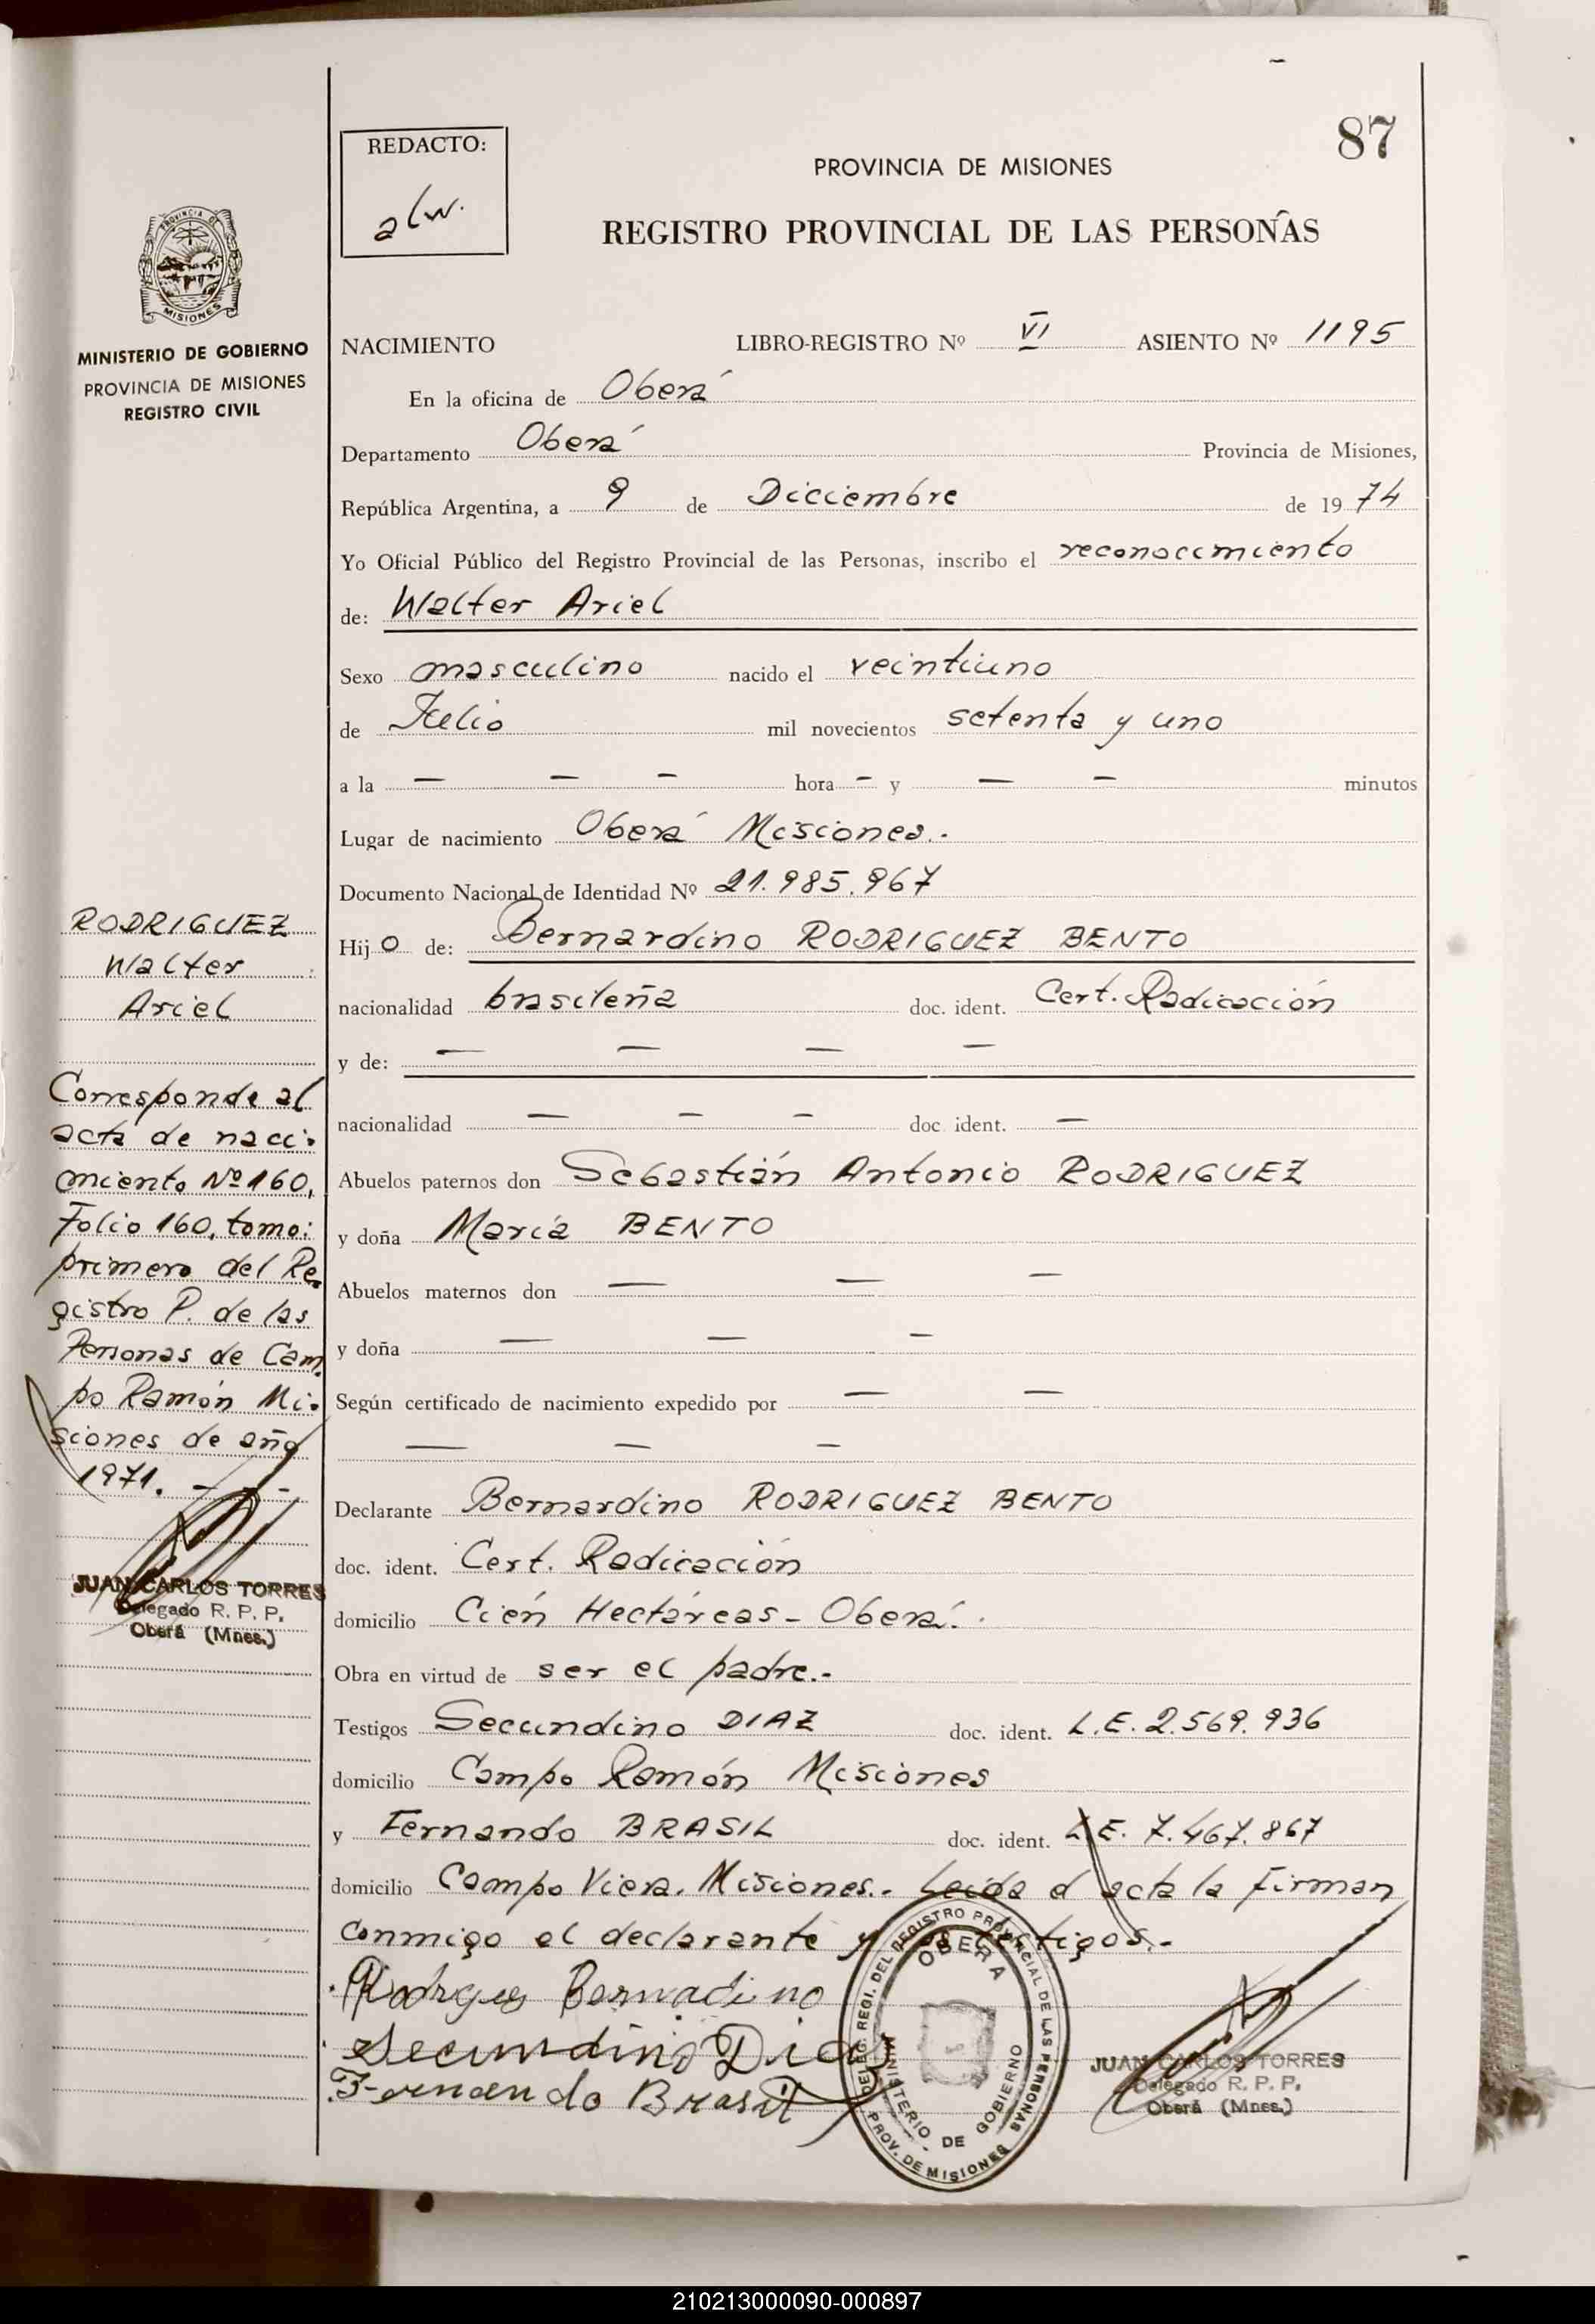 87
REDACTO:
alw.
PROVINCIA DE MISIONES
REGISTRO PROVINCIAL DE LAS PERSONAS
PROVINCIA DE
MISIONES
MINISTERIO DE GOBIERNO
PROVINCIA DE MISIONES
REGISTRO CIVIL
NACIMIENTO LIBRO-REGISTRO Nº VI ASIENTO Nº 1195
En la oficina de Oberá
Departamento Oberá Provincia de Misiones,
República Argentina, a 9 de Diciembre de 1974
Yo Oficial Público del Registro Provincial de las Personas, inscribo el reconocimiento
de: Walter Ariel
Sexo masculino nacido el veintiuno
de Julio mil novecientos setenta y uno
a la — — — hora - y — — minutos
Lugar de nacimiento Oberá Misiones.-
Documento Nacional de Identidad Nº 21.985.967
Hijo de: Bernardino RODRIGUEZ BENTO
nacionalidad brasileña doc. ident. Cert. Radicación
y de: — — — —
nacionalidad — — — doc. ident. —
Abuelos paternos don Sebastián Antonio RODRIGUEZ
y doña María BENTO
Abuelos maternos don — — —
y doña — — —
Según certificado de nacimiento expedido por — —
— — —
Declarante Bernardino RODRIGUEZ BENTO
doc. ident. Cert. Radicación
domicilio Cién Hectáreas - Oberá.
Obra en virtud de ser el padre.-
Testigos Secundino DIAZ doc. ident. L.E. 2.569.936
domicilio Campo Ramón Misiones
y Fernando BRASIL doc. ident. L.E. 7.467.867
domicilio Campo Viera. Misiones.- Leída el acta la firman
conmigo el declarante y los testigos.-
Bernadino
Secundino Diaz
Fernando Brasil
RODRIGUEZ
Walter
Ariel
Corresponde al
acta de naci-
miento Nº 160,
Folio 160, tomo:
primero del Re-
gistro P. de las
Personas de Cam-
po Ramón Mi-
siones de año
1971. - - -
JUAN CARLOS TORRES
Delegado R. P. P.
Oberá (Mnes.)
DELEG. REGI. DEL REGISTRO PROVINCIAL DE LAS PERSONAS
OBERA
MINISTERIO DE GOBIERNO
PROV. DE MISIONES
JUAN CARLOS TORRES
Delegado R. P. P.
Oberá (Mnes.)
210213000090-000897